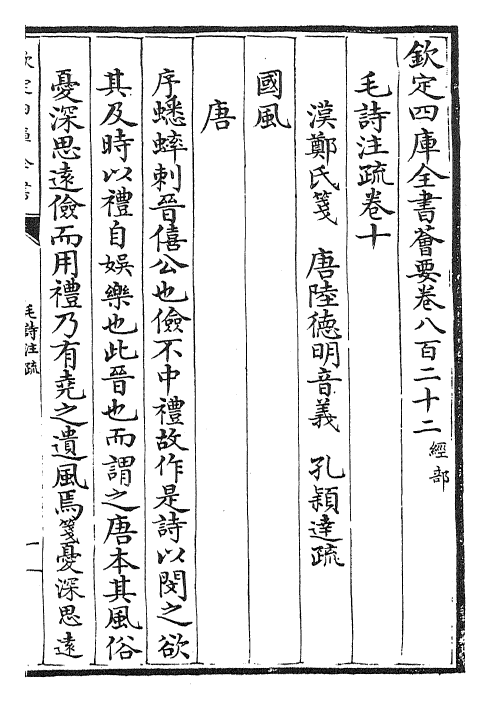 欽定四庫全書薈要卷八百二十二 經部
毛詩注疏卷十
漢鄭氏箋 唐陸德明音義 孔穎達疏
國風
唐
序蟋蟀刺晉僖公也儉不中禮故作是詩以閔之欲
其及時以禮自娛樂也此晉也而謂之唐本其風俗
憂深思遠儉而用禮乃有堯之遺風焉箋憂深思遠
欽定四庫全書
毛詩注疏
一